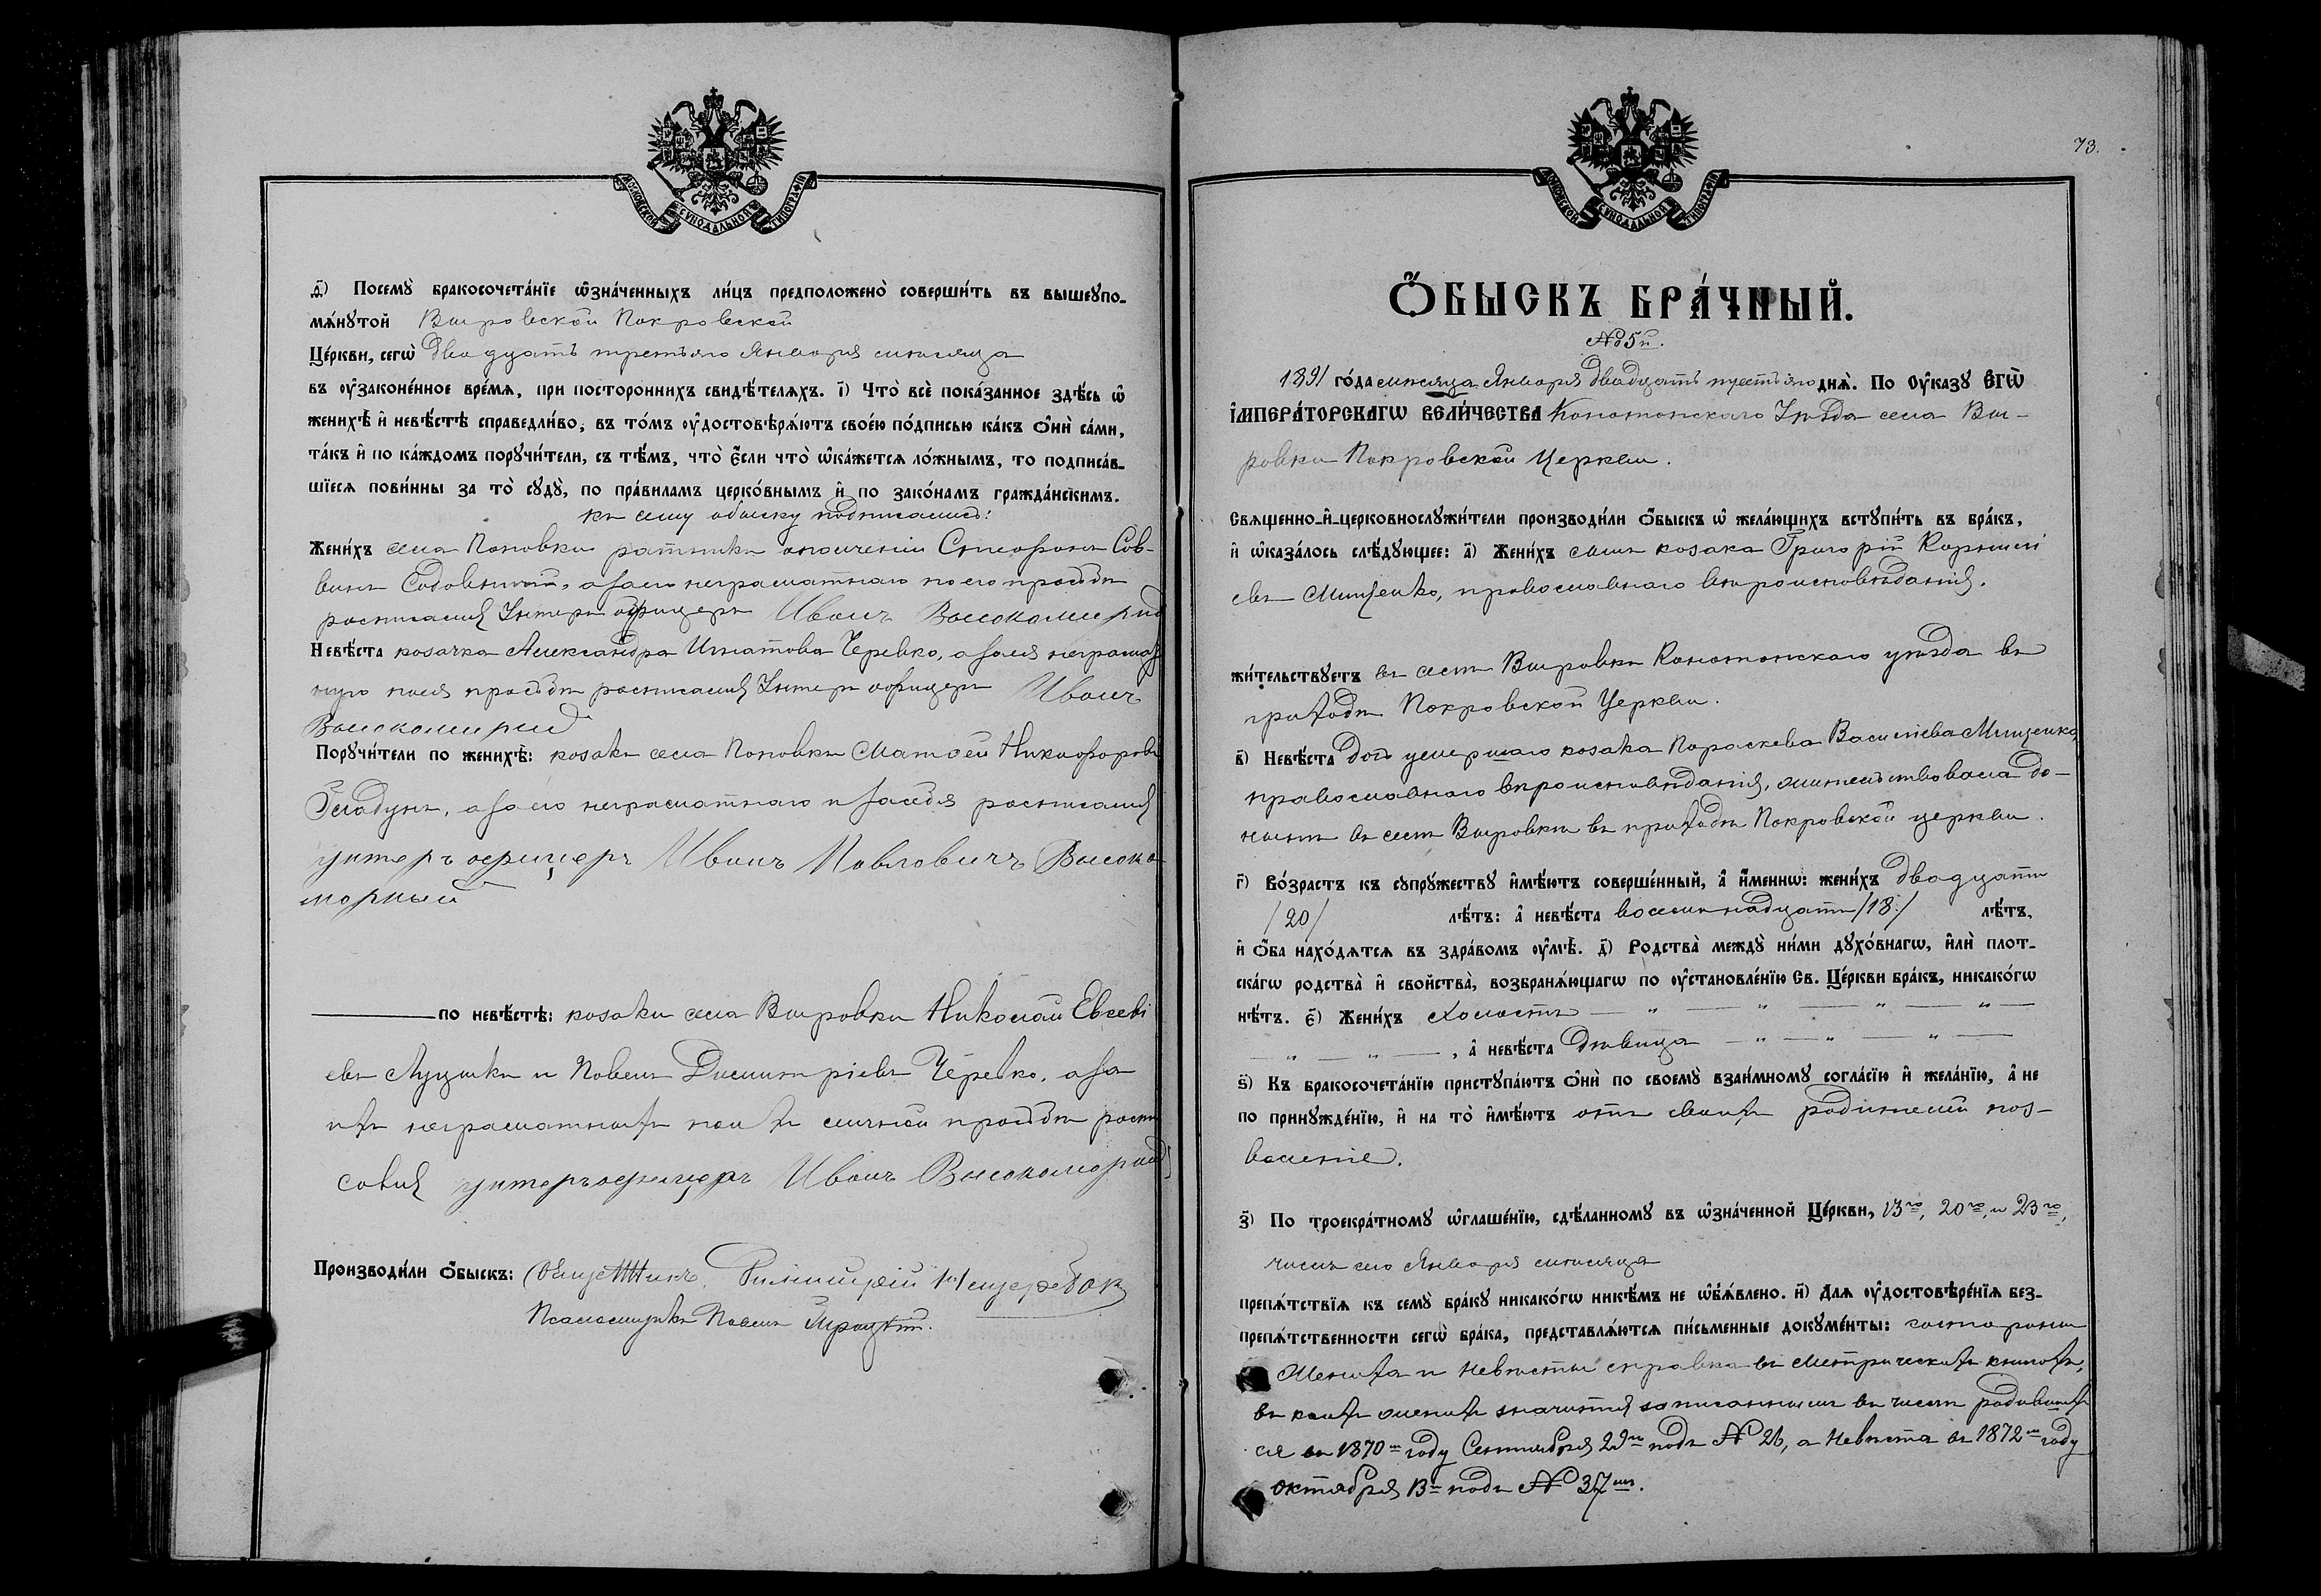 МОСКОВСКОЙ СѴНОДАЛЬНОЙ ТИПОГРАФІИ
ѳ҃) Посемꙋ̀ бракосочета́нїе ѡ҆зна́ченныхъ ли́цъ предположено̀ соверши́ть въ вышеꙋпо-
мѧ́нꙋтой Выровской Покровской
Це́ркви, сегѡ̀ двадцать третьяго Января мѣсяца
въ ᲂу҆законе́нное вре́мѧ, при постороннихъ свидѣ́телѧхъ. і҃) Что̀ всѐ пока́занное здѣ́сь ѡ҆
женихѣ̀ и҆ невѣ́стѣ справедли́во, въ то́мъ ᲂу҆достовѣрѧ́ютъ свое́ю по́дписью ка́къ ѻ҆нѝ са́ми,
та́къ и҆ по ка́ждомъ порꙋчи́тели, съ тѣ́мъ, что̀ є҆́сли что̀ ѡ҆ка́жетсѧ ло́жнымъ, то подписа́в-
шїесѧ пови́нны за то̀ сꙋдꙋ̀, по пра́виламъ церко́внымъ и҆ по зако́намъ гражда́нскимъ.
къ сему обыску подписались:
Жени́хъ села Поповки ратникъ ополченія Стефанъ Сав-
винъ Садовничій, а за него неграмотнаго по его просьбѣ
росписался Унтеръ офицеръ Иванъ Высокоморный
Невѣ́ста козачка Александра Игнатова Черевко, а за нея неграмот
ную по ея просьбѣ росписался Унтеръ офицеръ Иванъ
Высокоморный
Порꙋчи́тели по женихѣ̀: козакъ села Поповки Матѳей Никифоровъ
Гладунъ, а за него неграмотнаго и за себя росписался
унтеръ офицеръ Иванъ Павловичъ Высоко
морный
по невѣ́стѣ: козаки села Выровки Николай Евсеві
евъ Луцикъ и Павелъ Димитріевъ Черевко, а за
ихъ неграмотныхъ по ихъ личной просьбѣ роспи
сался унтеръофицеръ Иванъ Высокоморный
Производи́ли ѻ҆́быскъ: Священникъ
Псаломщикъ Павелъ
73.
МОСКОВСКОЙ СѴНОДАЛЬНОЙ ТИПОГРАФІИ
Ѻ҆́БЫСКЪ БРА́ЧНЫЙ.
№ 5й.
1891 го́да мѣсяца Января двадцать третьяго днѧ̀. По Оу҆казꙋ Є҆гѡ̀
І҆мпера́торскагѡ вели́чества Конотопскаго Уѣзда села Вы-
ровки Покровской Церкви.
Свѧщенно-и҆-церковнослꙋжи́тели производи́ли ѻ҆́быскъ ѡ҆ жела́ющихъ встꙋпи́ть въ бра́къ,
и҆ ѡ҆каза́лось слѣ́дꙋющее: а҃) Жени́хъ сынъ козака Григорій Корнилі
евъ Мищенко, православнаго вѣроисповѣданія.
жи́тельствꙋетъ въ селѣ Выровкѣ Конотопскаго уѣзда въ
приходѣ Покровской Церкви.
в҃) Невѣ́ста дочь умершаго козака Параскева Василіева Мищенкова
православнаго вѣроисповѣданія, жительствовала до-
нынѣ въ селѣ Выровкѣ въ приходѣ Покровской церкви.
г҃) Во́зрастъ къ сꙋпрꙋ́жествꙋ и҆мѣ́ютъ соверше́нный, а҆ и҆́меннѡ: жени́хъ двадцать
/20/ лѣ́тъ: а҆ невѣ́ста восемнадцать /18/ лѣ́тъ,
и҆ ѻ҆́ба нахо́дѧтсѧ въ здра́вомъ ᲂу҆мѣ̀. д҃) Родства̀ междꙋ̀ ни́ми дꙋхо́внагѡ, и҆лѝ плот-
ска́гѡ родства̀ и҆ свойства̀, возбранѧ́ющагѡ по ᲂу҆становле́нїю Св. Це́ркви бра́къ, никако́гѡ
нѣ́тъ. є҃) Жени́хъ холостъ — „ — „ — „ — „ —
— „ — „ —, а҆ невѣ́ста дѣвица — „ — „ — „ —
ѕ҃) Къ бракосочета́нїю пристꙋпа́ютъ ѻ҆нѝ по своемꙋ̀ взаи́мномꙋ согла́сїю и҆ жела́нїю, а҆ не
по принꙋжде́нїю, и҆ на то̀ и҆мѣ́ютъ отъ своихъ родителей поз-
воленіе.
з҃) По троекра́тномꙋ ѡ҆глаше́нїю, сдѣ́ланномꙋ въ ѡ҆зна́ченной Це́ркви, 13го, 20го, и 23го,
числъ сего Января мѣсяца
препѧ́тствїѧ къ семꙋ̀ бра́кꙋ никако́гѡ никѣ́мъ не ѡ҆б̾ѧ́влено. и҃) Длѧ ᲂу҆достовѣре́нїѧ без-
препѧ́тственности сегѡ̀ бра́ка, представлѧ́ютсѧ пи́сьменные докꙋме́нты: со стороны
Жениха и Невѣсты справка въ Метрическихъ книгахъ,
въ коихъ женихъ значится записаннымъ въ числѣ родивших
ся въ 1870м году Сентября 29го подъ № 26, а Невѣста въ 1872м году
октября 13 подъ № 37мъ.